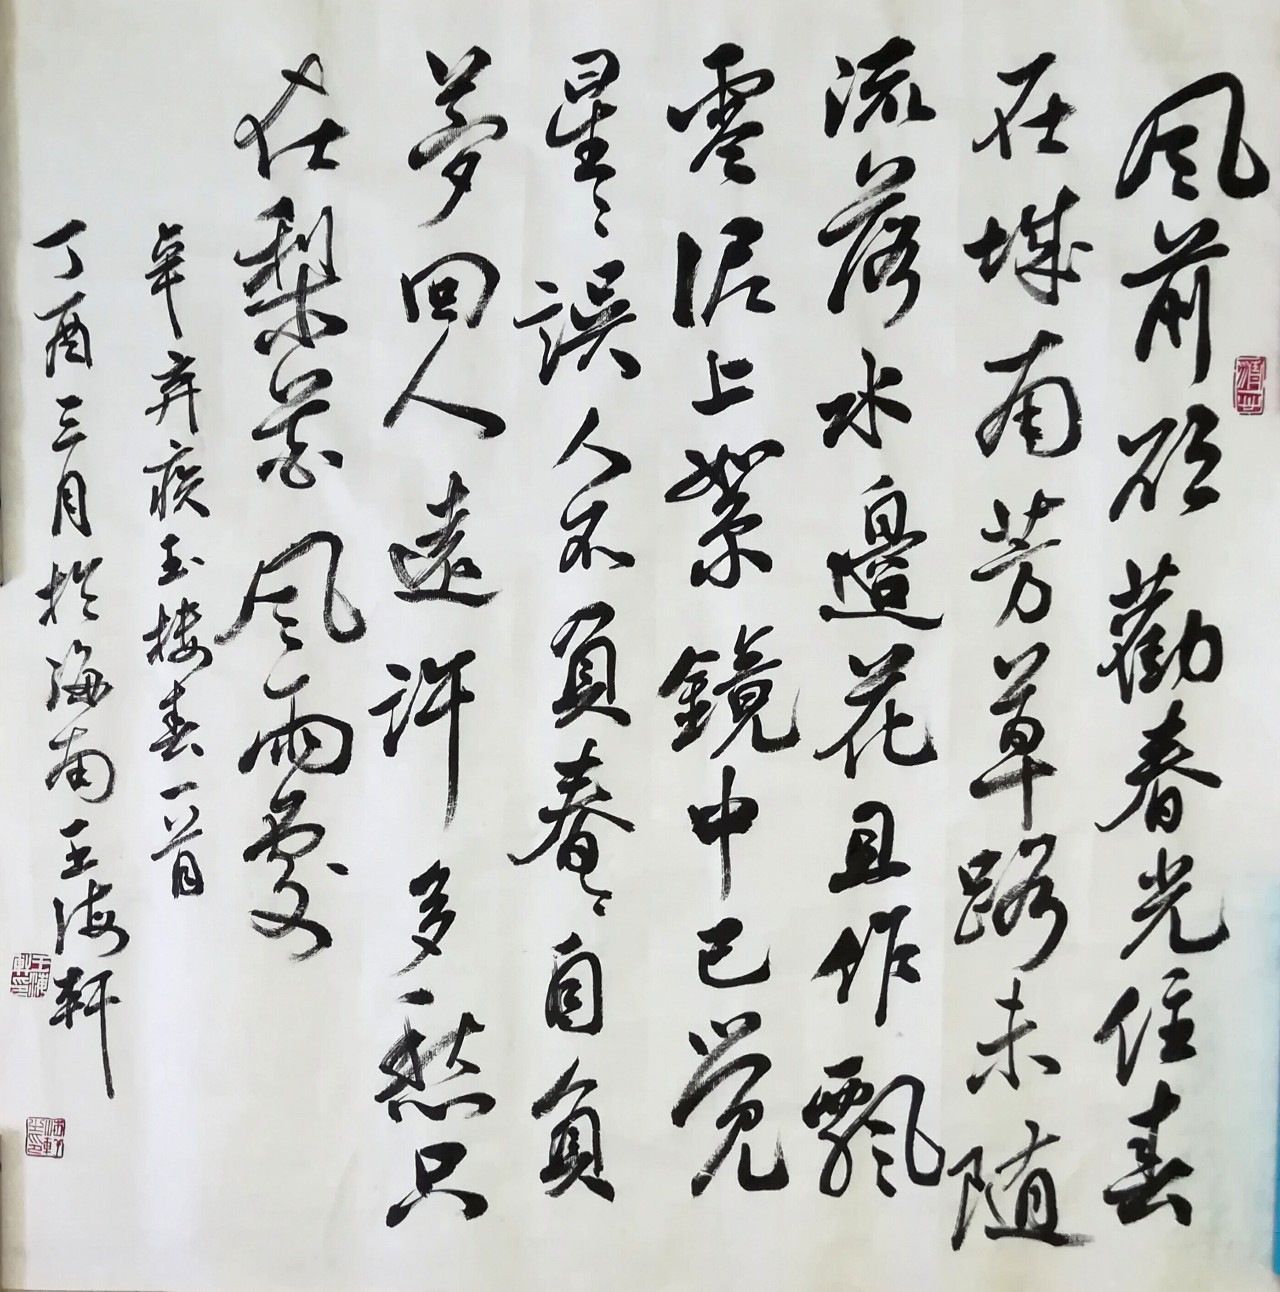 风前欲勸春光住春
在城南芳草路未随
流落水邊花且作飘
零泥上絮鏡中已觉
星々誤人不負春々自負
夢回人遠許多愁只
在梨花风雨處
辛弃疾玉楼春一首
丁酉三月於海南王海軒